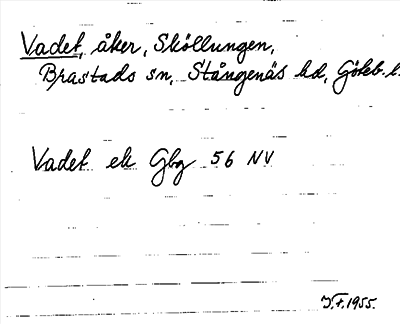 Vadet, åker, Sköllungen,
Brastads sn, Stångenäs hd, Göteb. l.
Vadet ek Gbg 56 NV
J.F. 1955.